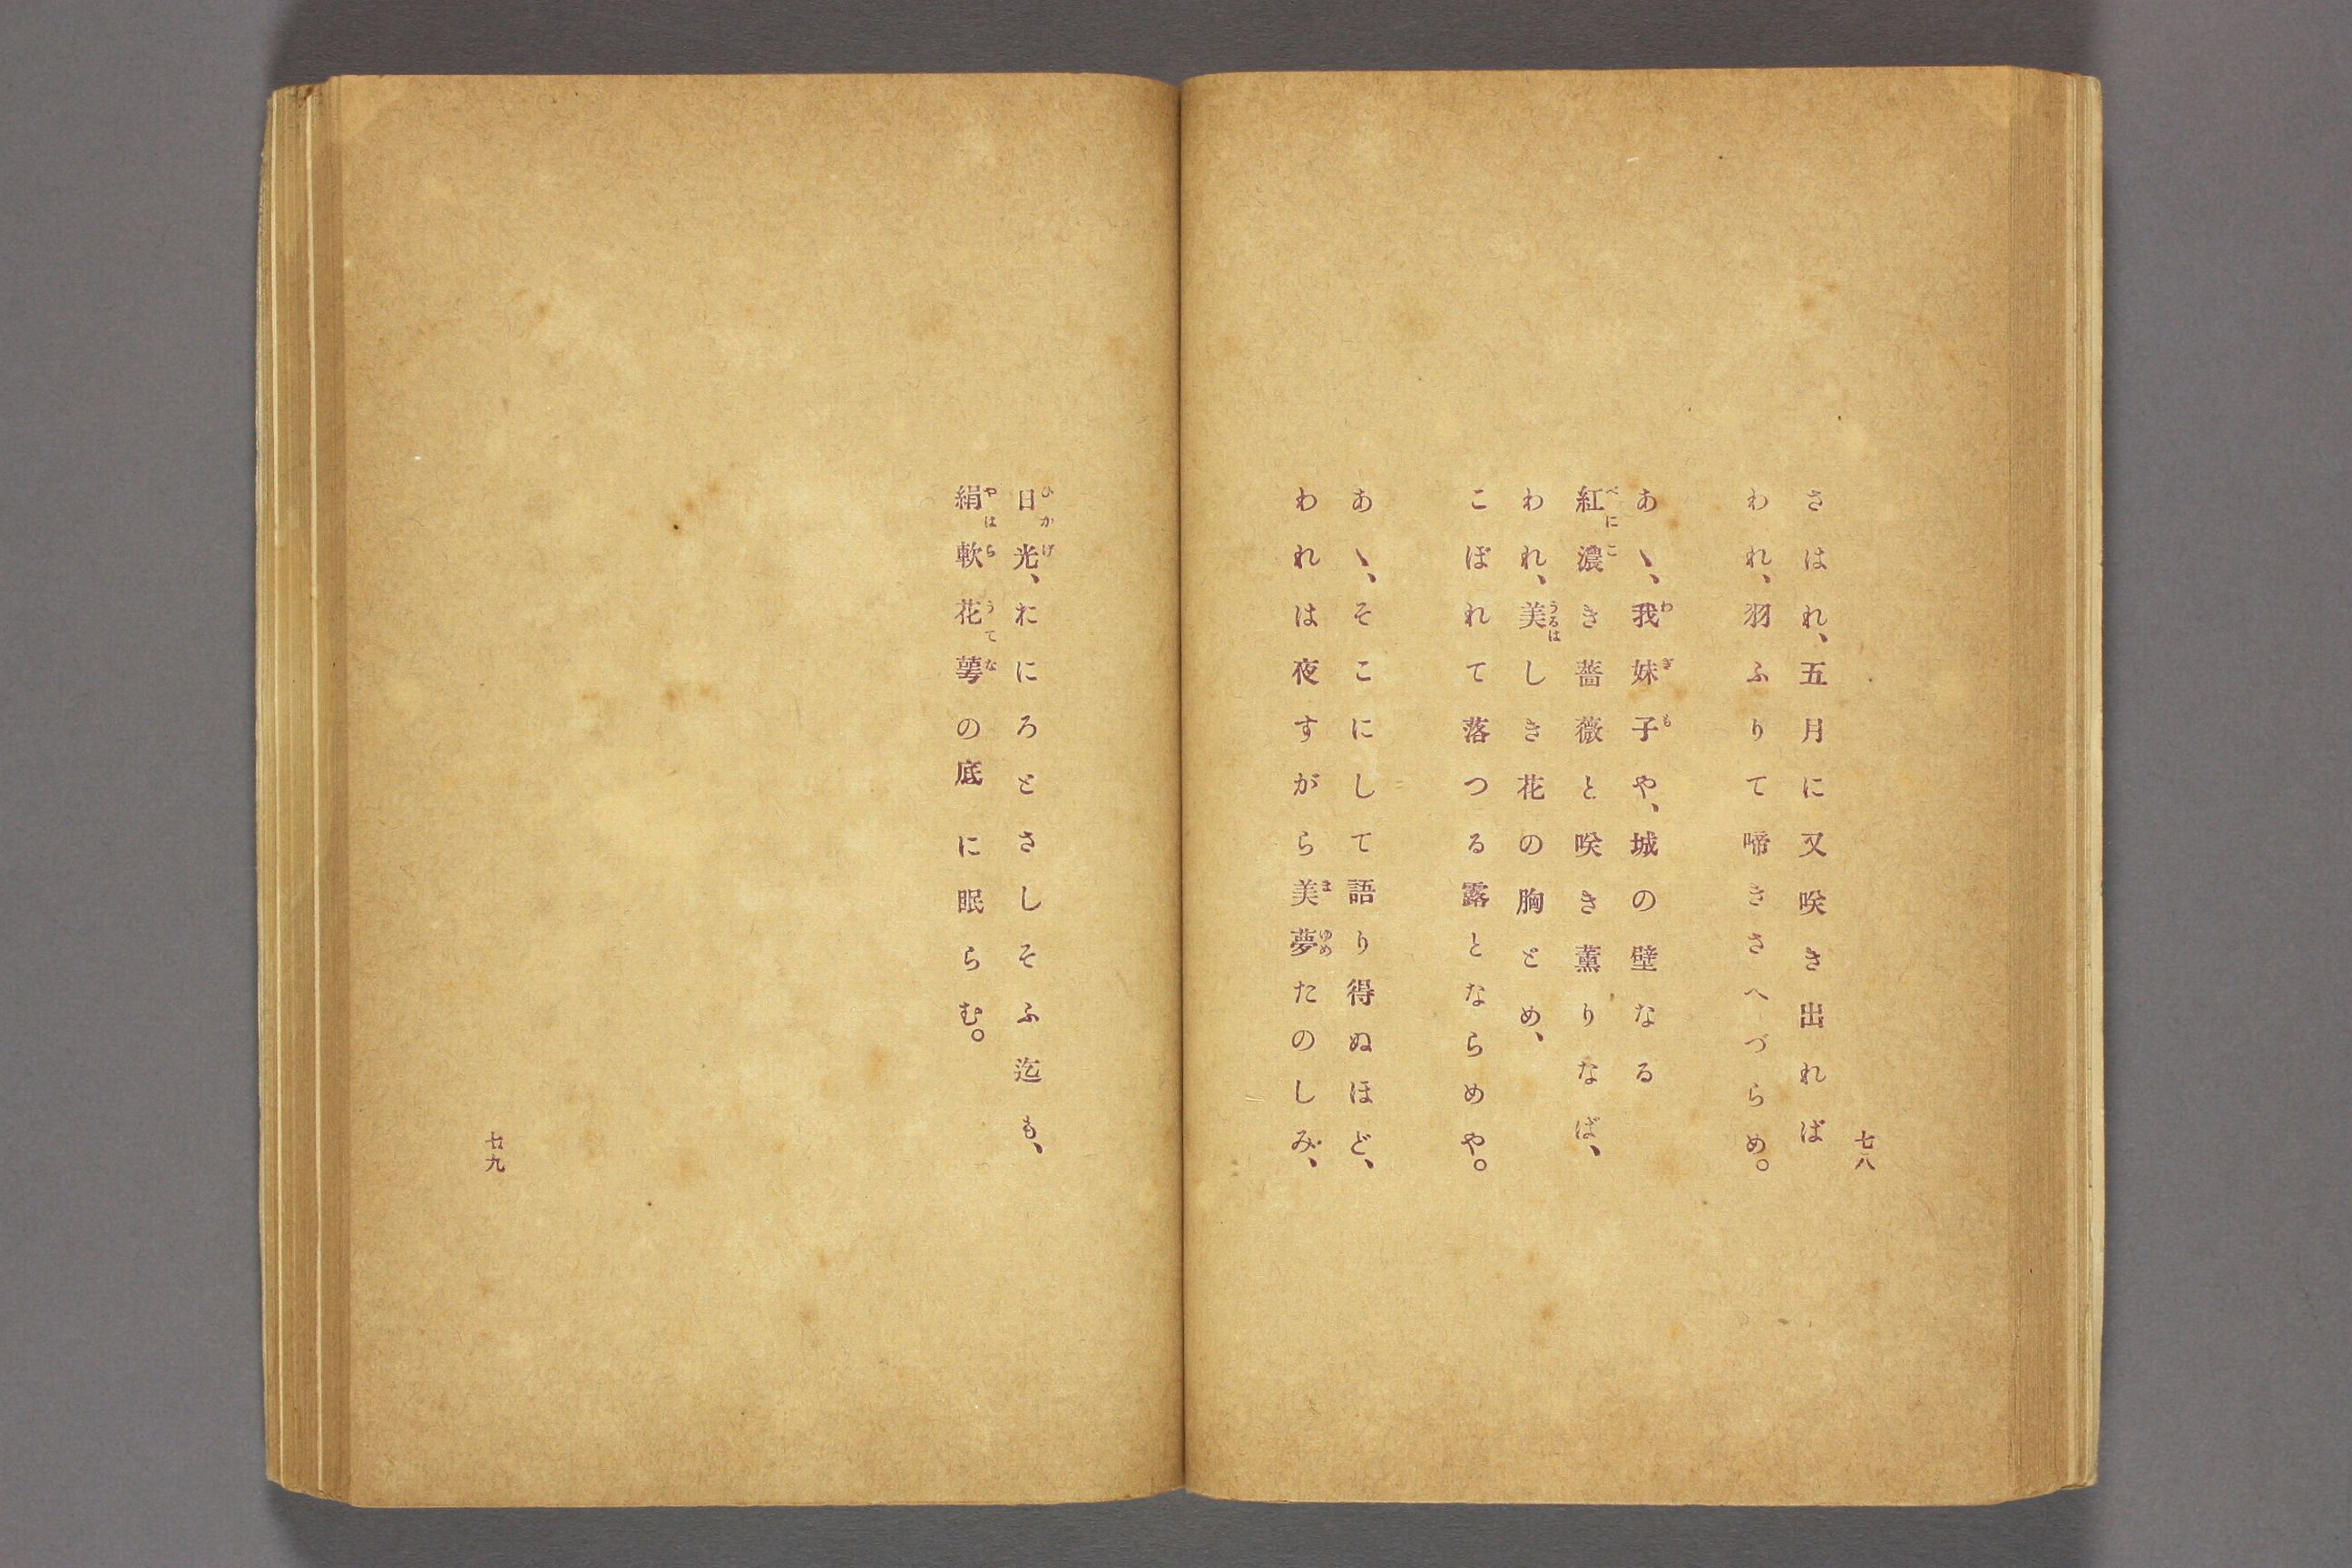 七八
さはれ、五月に又咲き出れば
われ、羽ふりて啼きさへづらめ。
あゝ、我妹子や、城の壁なる
紅濃き薔薇と咲き薫りなば、
われ、美しき花の胸どめ、
こぼれて落つる露とならめや。
あゝ、そこにして語り得ぬほど、
われは夜すがら美夢たのしみ、
日光、おにろどさしそふ迄も、
絹軟花萼の底に眠らむ。
七九